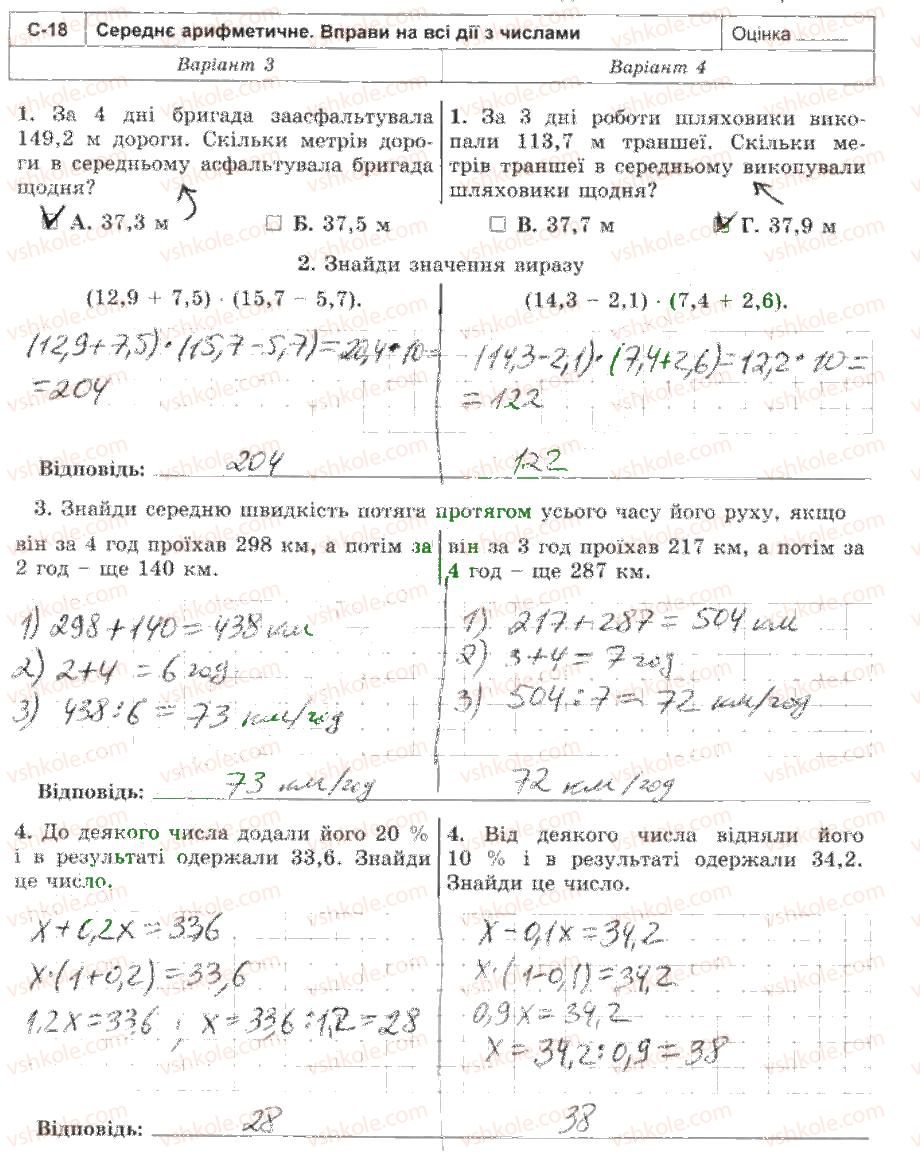 С-18 Середнє арифметичне. Вправи на всі дії з числами Оцінка
Варіант 3
Варіант 4
1. За 4 дні бригада заасфальтувала
149,2 м дороги. Скільки метрів доро-
ги в середньому асфальтувала бригада
щодня?
1. За 3 дні роботи шляховики вико-
пали 113,7 м траншеї. Скільки ме-
трів траншеї в середньому викопували
шляховики щодня?
А. 37,3 м Б. 37,5 м В. 37,7 м Г. 37,9 м
2. Знайди значення виразу
(12,9 + 7,5) · (15,7 – 5,7).
(12,9+7,5)·(15,7-5,7)=20,4·10=
=204
Відповідь: 204
(14,3 – 2,1) · (7,4 + 2,6).
(14,3-2,1)·(7,4+2,6)=12,2·10=
=122
122
3. Знайди середню швидкість потяга протягом усього часу його руху, якщо
він за 4 год проїхав 298 км, а потім за
2 год – ще 140 км.
1) 298+140=438 км
2) 2+4 = 6 год
3) 438:6 = 73 км/год
Відповідь: 73 км/год
він за 3 год проїхав 217 км, а потім за
4 год – ще 287 км.
1) 217+287= 504 км
2) 3+4= 7 год
3) 504:7= 72 км/год
72 км/год
4. До деякого числа додали його 20 %
і в результаті одержали 33,6. Знайди
це число.
x+0,2x=33,6
x·(1+0,2)=33,6
1,2x=33,6 ; x=33,6:1,2=28
Відповідь: 28
4. Від деякого числа відняли його
10 % і в результаті одержали 34,2.
Знайди це число.
x-0,1x=34,2
x·(1-0,1)=34,2
0,9x=34,2
x=34,2:0,9=38
38